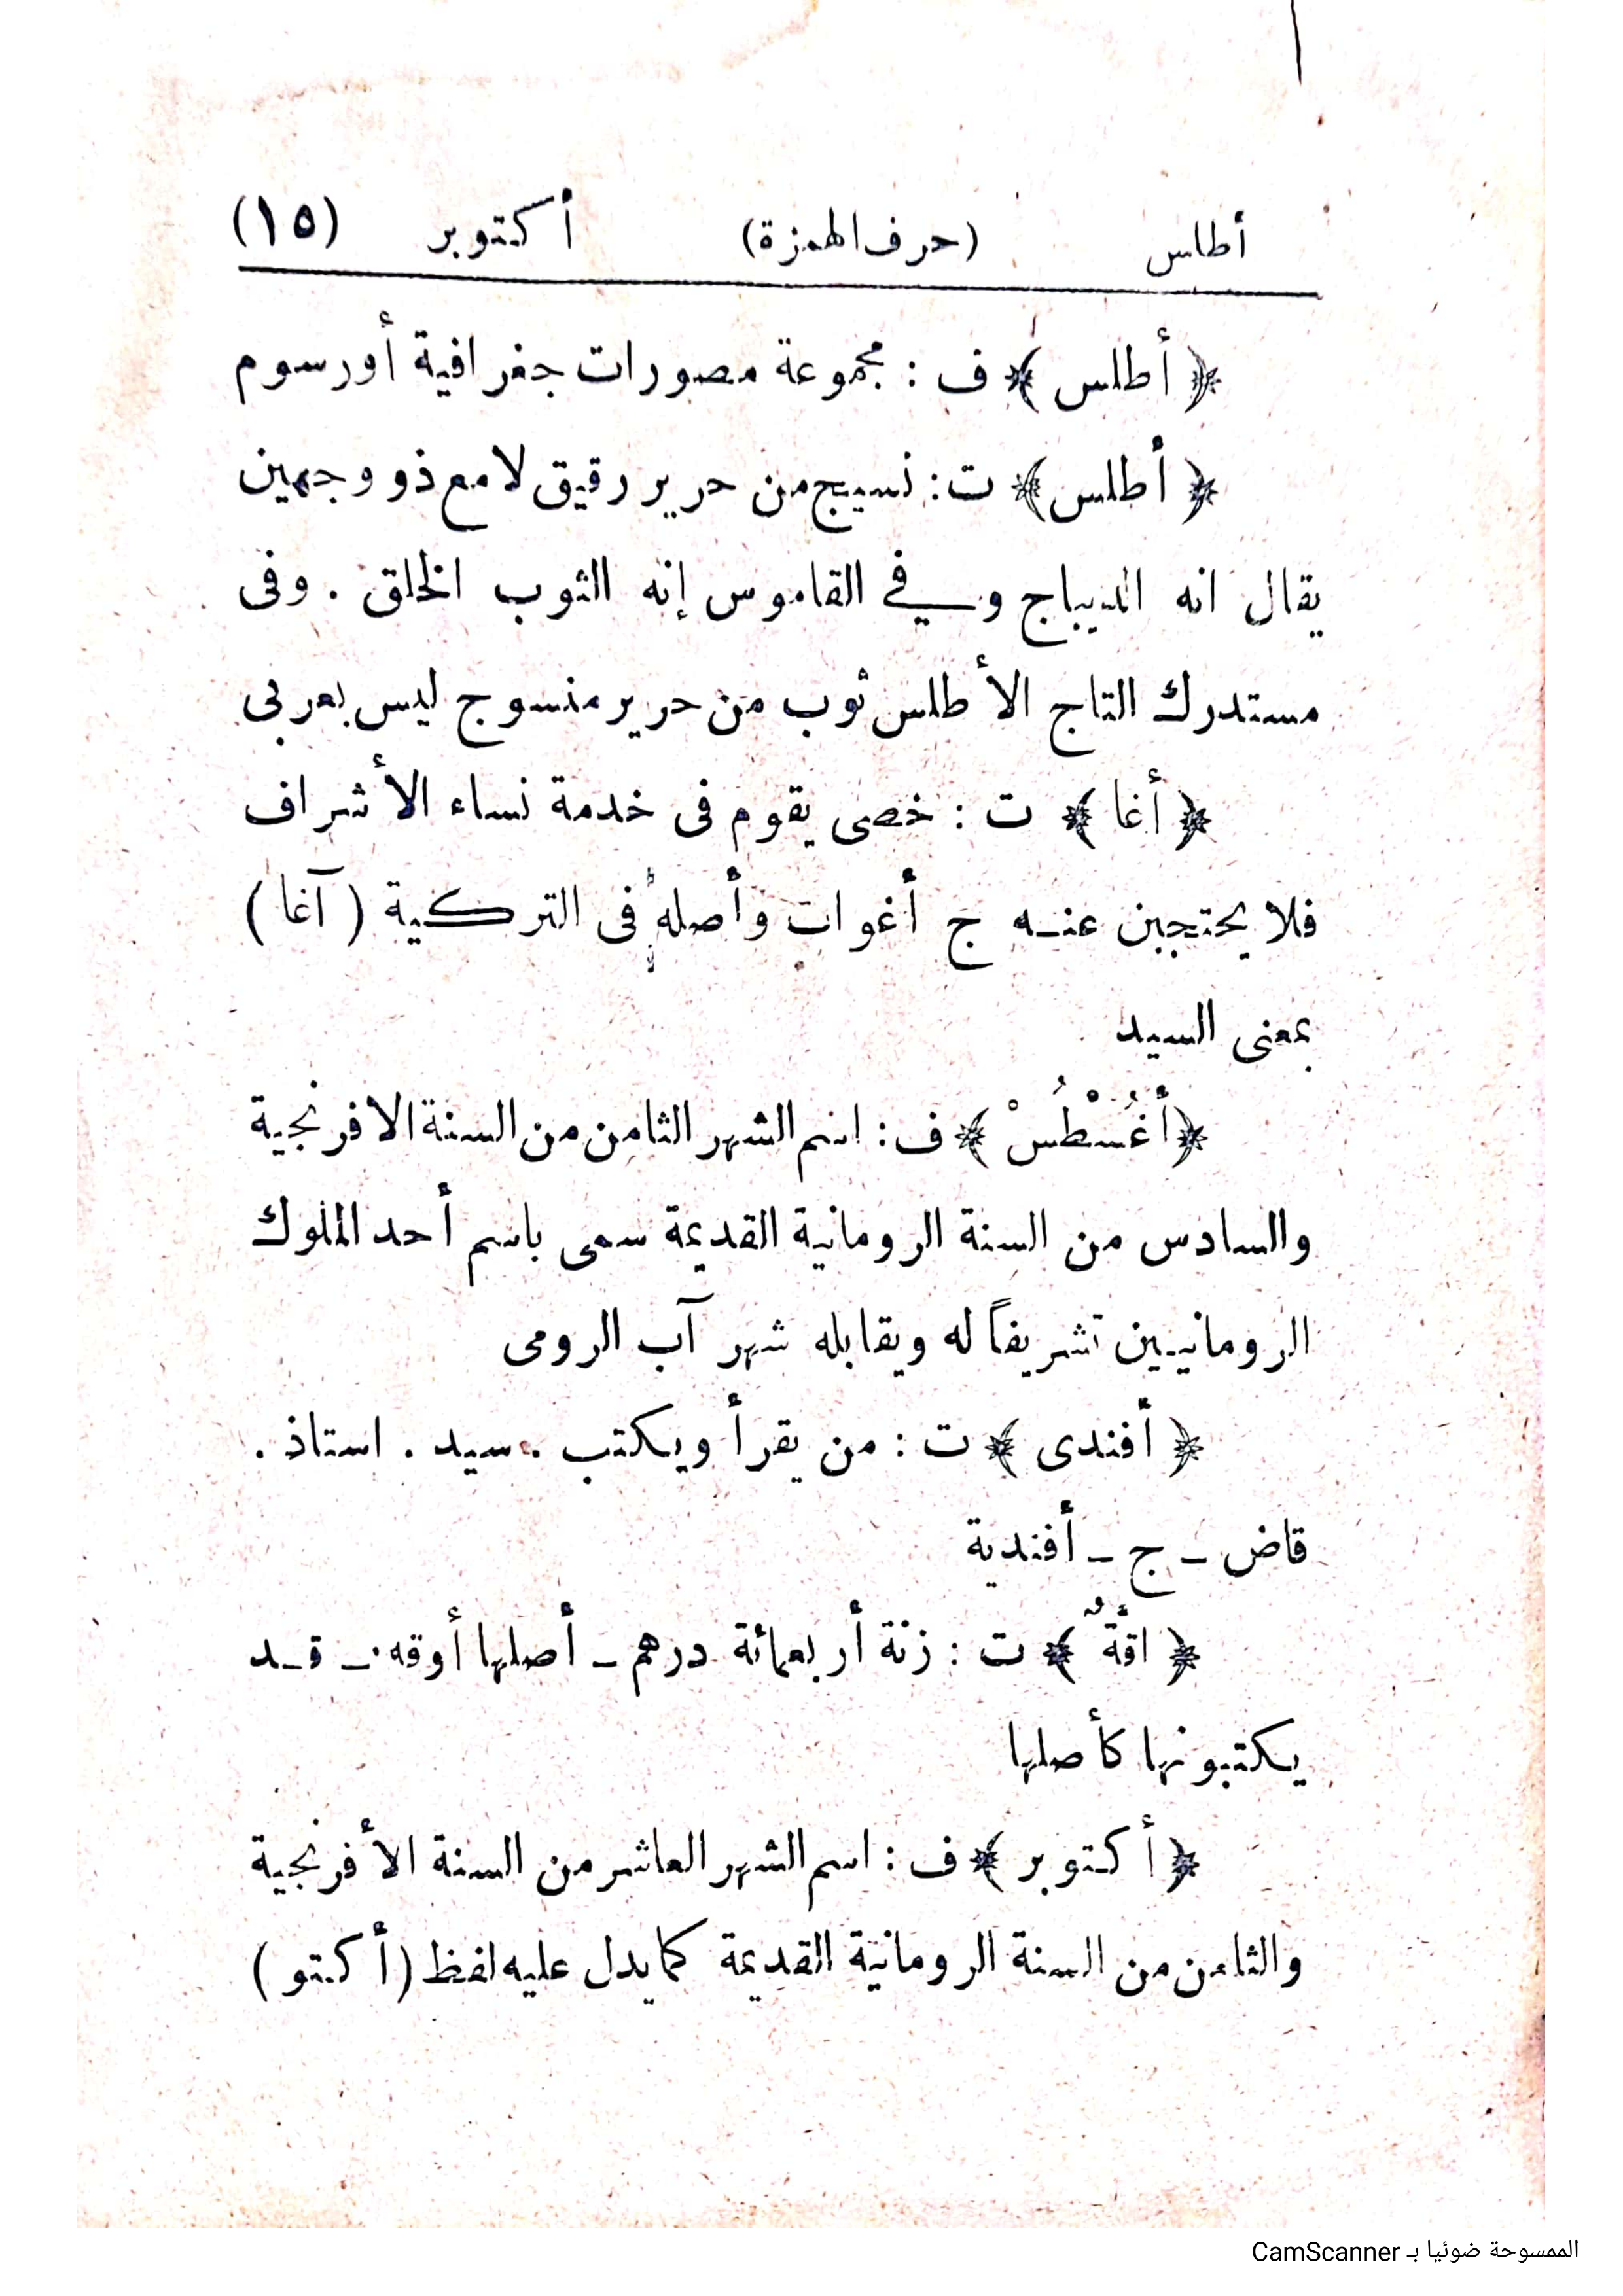 أطلس (حرف الهمزة) أكتوبر (١٥)
﴿ أطلس ﴾ ف : مجموعة مصورات جغرافية أو رسوم
﴿ أطلس ﴾ ت : نسيج من حرير رقيق لامع ذو وجهين
يقال انه الديباج وفي القاموس إنه الثوب الخلق . وفى
مستدرك التاج الأطلس ثوب من حرير منسوج ليس بعربى
﴿ أغا ﴾ ت : خصى يقوم فى خدمة نساء الأشراف
فلا يحتجبن عنه ج أغوات وأصله فى التركية ( آغا )
بمعنى السيد
﴿ أغُسْطُسْ ﴾ ف : اسم الشهر الثامن من السنة الافرنجية
والسادس من السنة الرومانية القديمة سمى باسم أحد الملوك
الرومانيين تشريفاً له ويقابله شهر آب الرومى
﴿ أفندى ﴾ ت : من يقرأ ويكتب . سيد . استاذ .
قاض ــ ج ــ أفندية
﴿ اقةٌ ﴾ ت : زنة أربعمائة درهم ــ أصلها أوقه ــ قد
يكتبونها كأصلها
﴿ أكتوبر ﴾ ف : اسم الشهر العاشر من السنة الأفرنجية
والثامن من السنة الرومانية القديمة كما يدل عليه لفظ ( أكتو )
الممسوحة ضوئيا بـ CamScanner